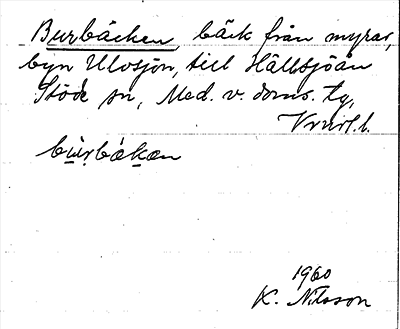 Burbäcken, bäck från myrar,
byn Ulvsjön, till Hällsjöån
Stöde sn, Med. v. doms. tg,
burbäkæn
1960
K. Nilsson